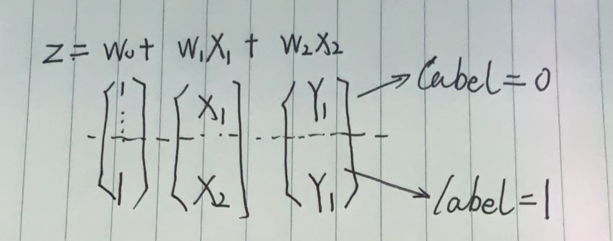 Z = W0 + W1X1 + W2X2
[1 ⋮ 1] [X1 X2] [Y1 Y1]
label=0
label=1